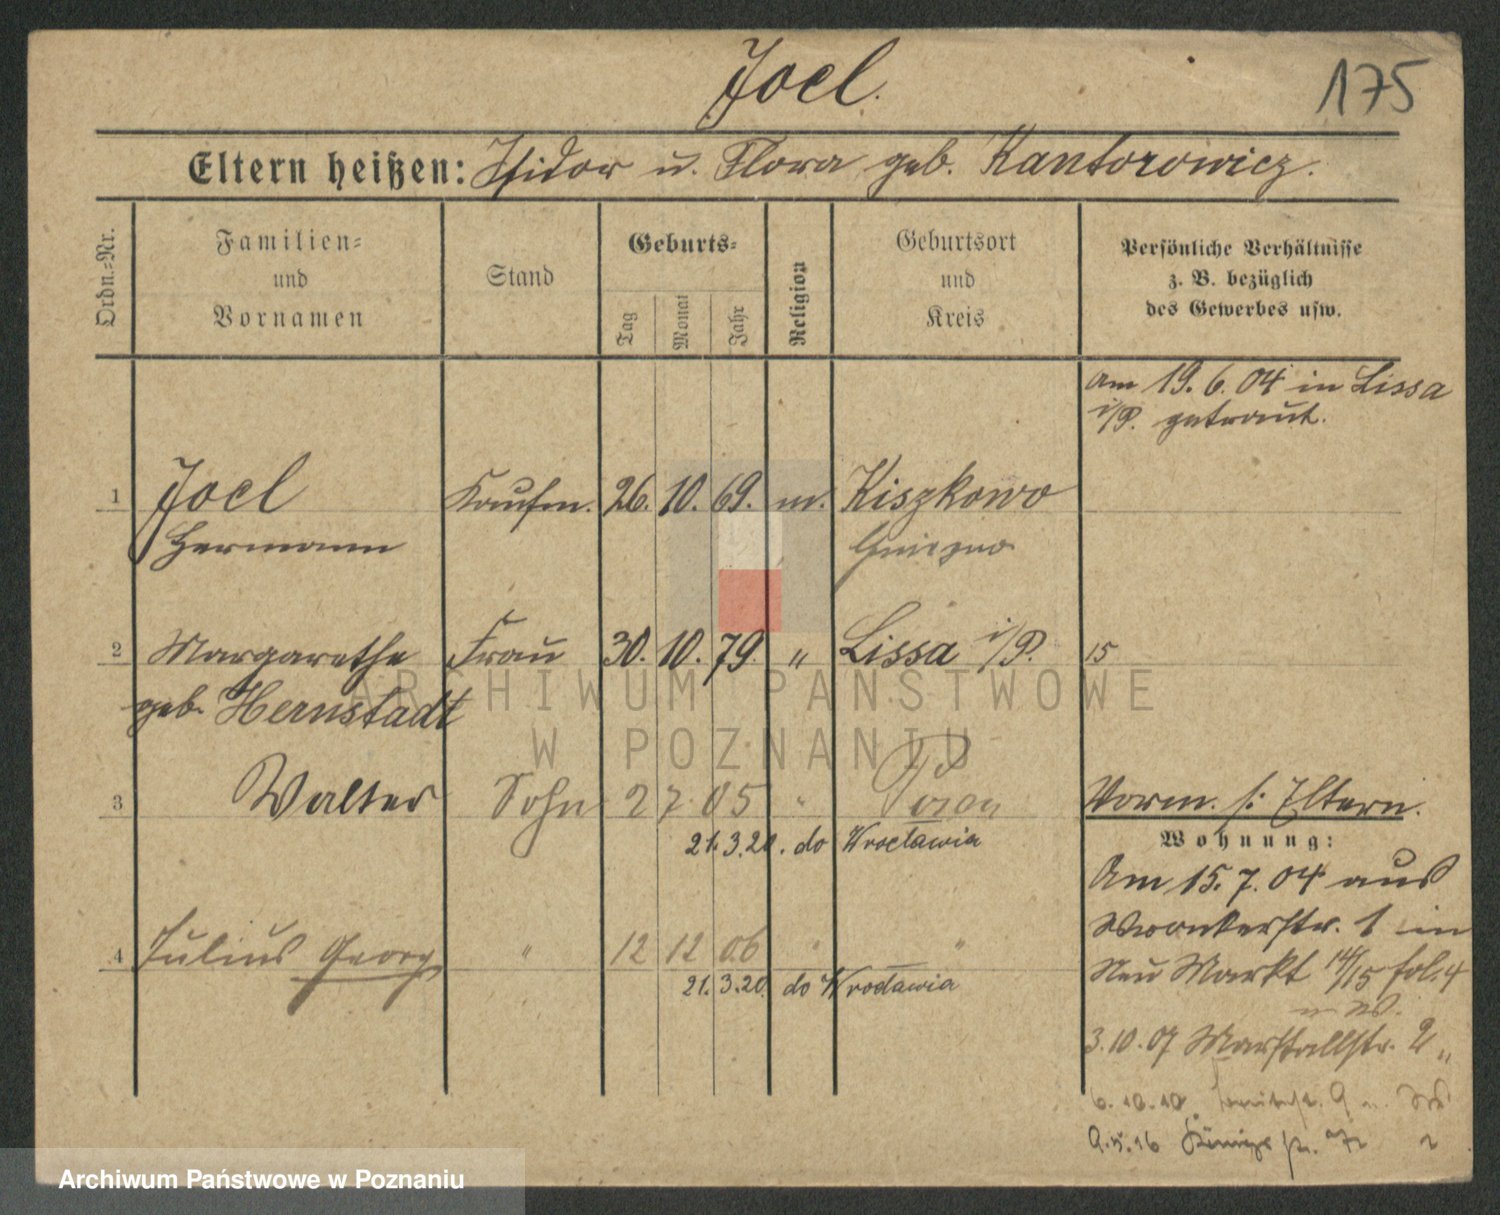 Joel.
175
Eltern heißen: Isidor u. Flora geb. Kantorowicz.
Ordn.-Nr.
Familien-
und
Vornamen
Stand
Geburts-
Tag
Monat
Jahr
Religion
Geburtsort
und
Kreis
Persönliche Verhältnisse
z. B. bezüglich
des Gewerbes usw.
am 19. 6. 04 in Lissa
i/P. getraut.
1 Joel Kaufm. 26. 10. 69. m. Kiszkowo
Hermann Gniezno
2 Margarethe Frau 30. 10. 79. " Lissa i/P. 15
geb. Hernstadt
3 Walter Sohn 2 7 05 " Posen Vorm. s: Eltern.
21.3.20. do Wrocławia
Wohnung:
Am 15. 7. 04 aus
Wronkerstr. 1 in
4 Julius Georg " 12 12 06 " "
Neu Markt 14/15 fol. 4
21.3.20 do Wrocławia
3.10.07 Marstallstr. 2 "
6.10.10 9
9.5.16 Königstr.
ARCHIWUM PAŃSTWOWE
W POZNANIU
Archiwum Państwowe w Poznaniu